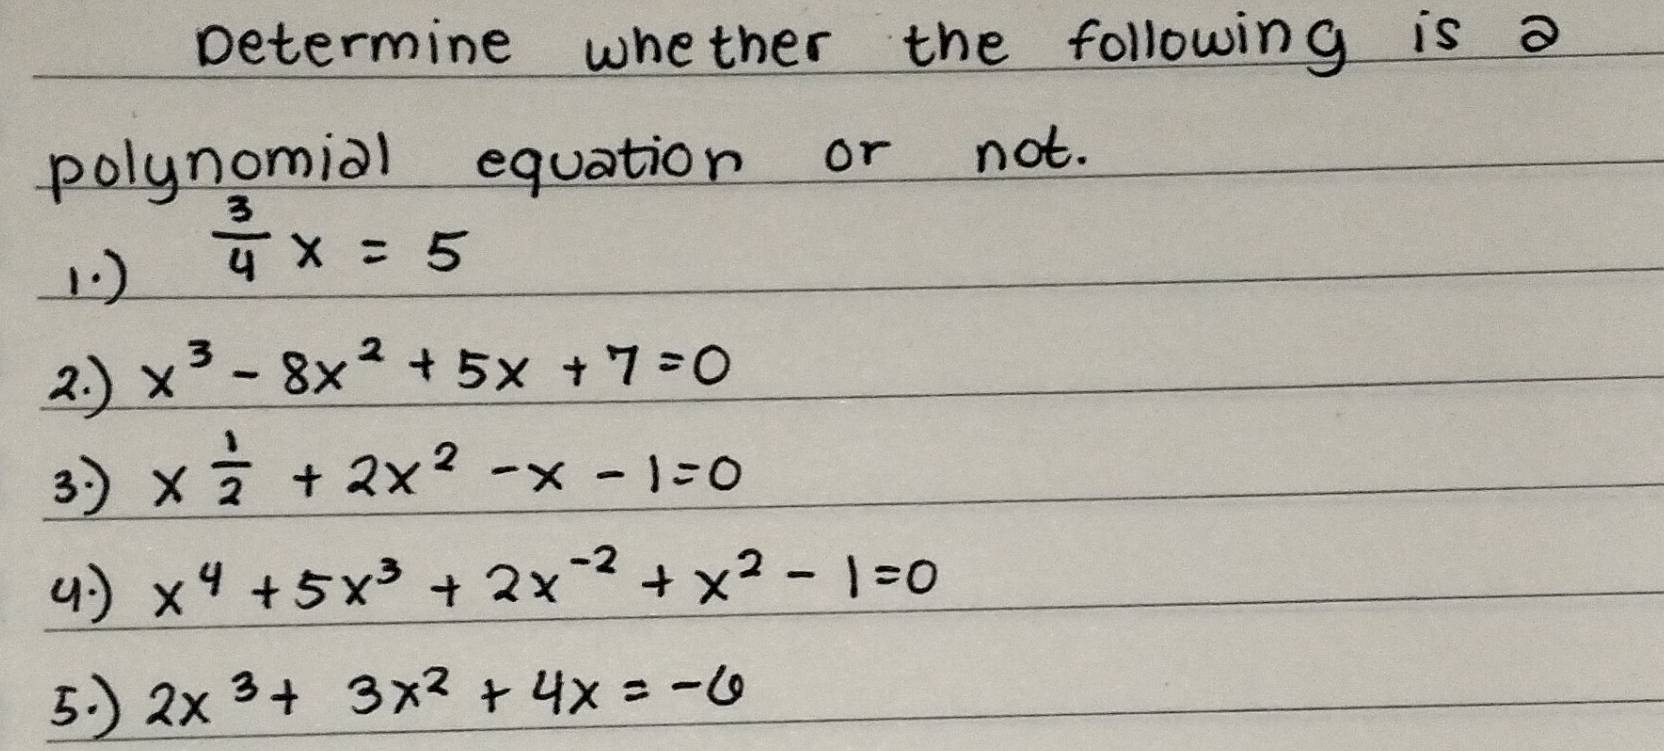 Determine whether the following is a
polynomial equation or not.
1.) 3/4 x = 5
2.) x³ - 8x² + 5x + 7 = 0
3.) x 1/2 + 2x² - x - 1 = 0
4.) x⁴ + 5x³ + 2x⁻² + x² - 1 = 0
5.) 2x³ + 3x² + 4x = -6